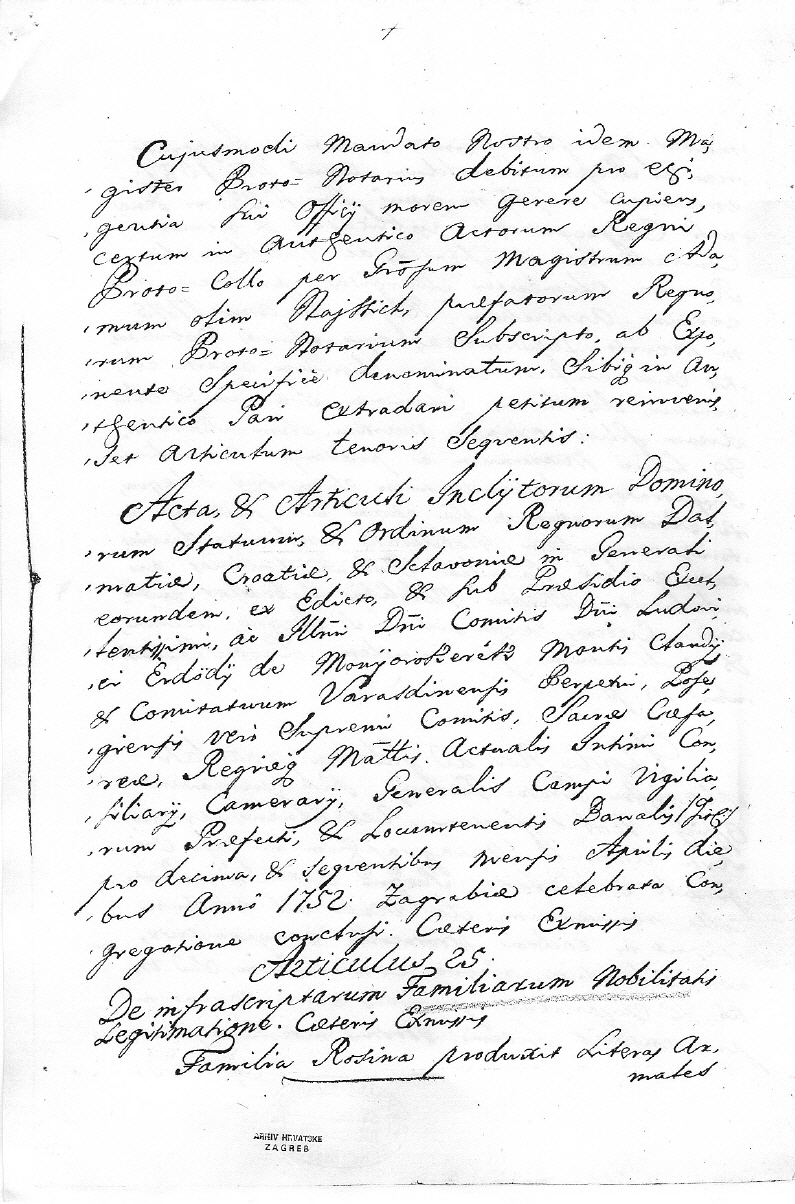 Cujusmodi Mandato Nostro idem Ma,
,gister Proto= Notarius debitum pro exi,
,gentia sui Officÿ morem gerere cupiens,
certum in Authentico Actorum Regni
Proto= Collo per Grōsum Magistrum Ada,
,mum olim Najssich, præfatorum Regno,
,rum Proto= Notarium Subscripto, ab Expo,
,nente Specificè denominatum, Sibiq̃ in Au,
,thentico Pari extradari petitum reinvenis,
,set Articulum tenoris Seqventis:
Acta, & Articuli Inclÿtorum Domino,
,rum Statuum, & Ordinum Regnorum Dal,
,matiæ, Croatiæ, & Sclavoniæ in Generali
eorundem, ex Edicto, & sub Præsidio Excel,
,lentissimi, ac Illm̃i Dñi Comitis Dñi Ludovi,
,ci Erdödÿ de Monÿorókerék Montis Claudÿ
& Comitatuum Varasdinensis Perpetui, Pose,
,giensis vero Supremi Comitis, Sacræ Cæsa,
,reæ, Regiæq̃ Mattis. Actualis Intimi Con,
,siliarÿ, Camerarÿ, Generalis Campi Vigilia,
,rum Præfecti, & Locumtenentis Banalis
pro decima, & seqventibus mensis Aprilis die,
,bus Annô 1752. Zagrabiæ celebrata Con,
,gregatione conclusi. Cæteris Exmissis
Articulus 25.
De infrascriptarum Familiarum Nobilitatis
Legitimatione. Cæteris Exmissis
Familia Rosina produxit Literas Ar,
males
ARHIV HRVATSKE
ZAGREB